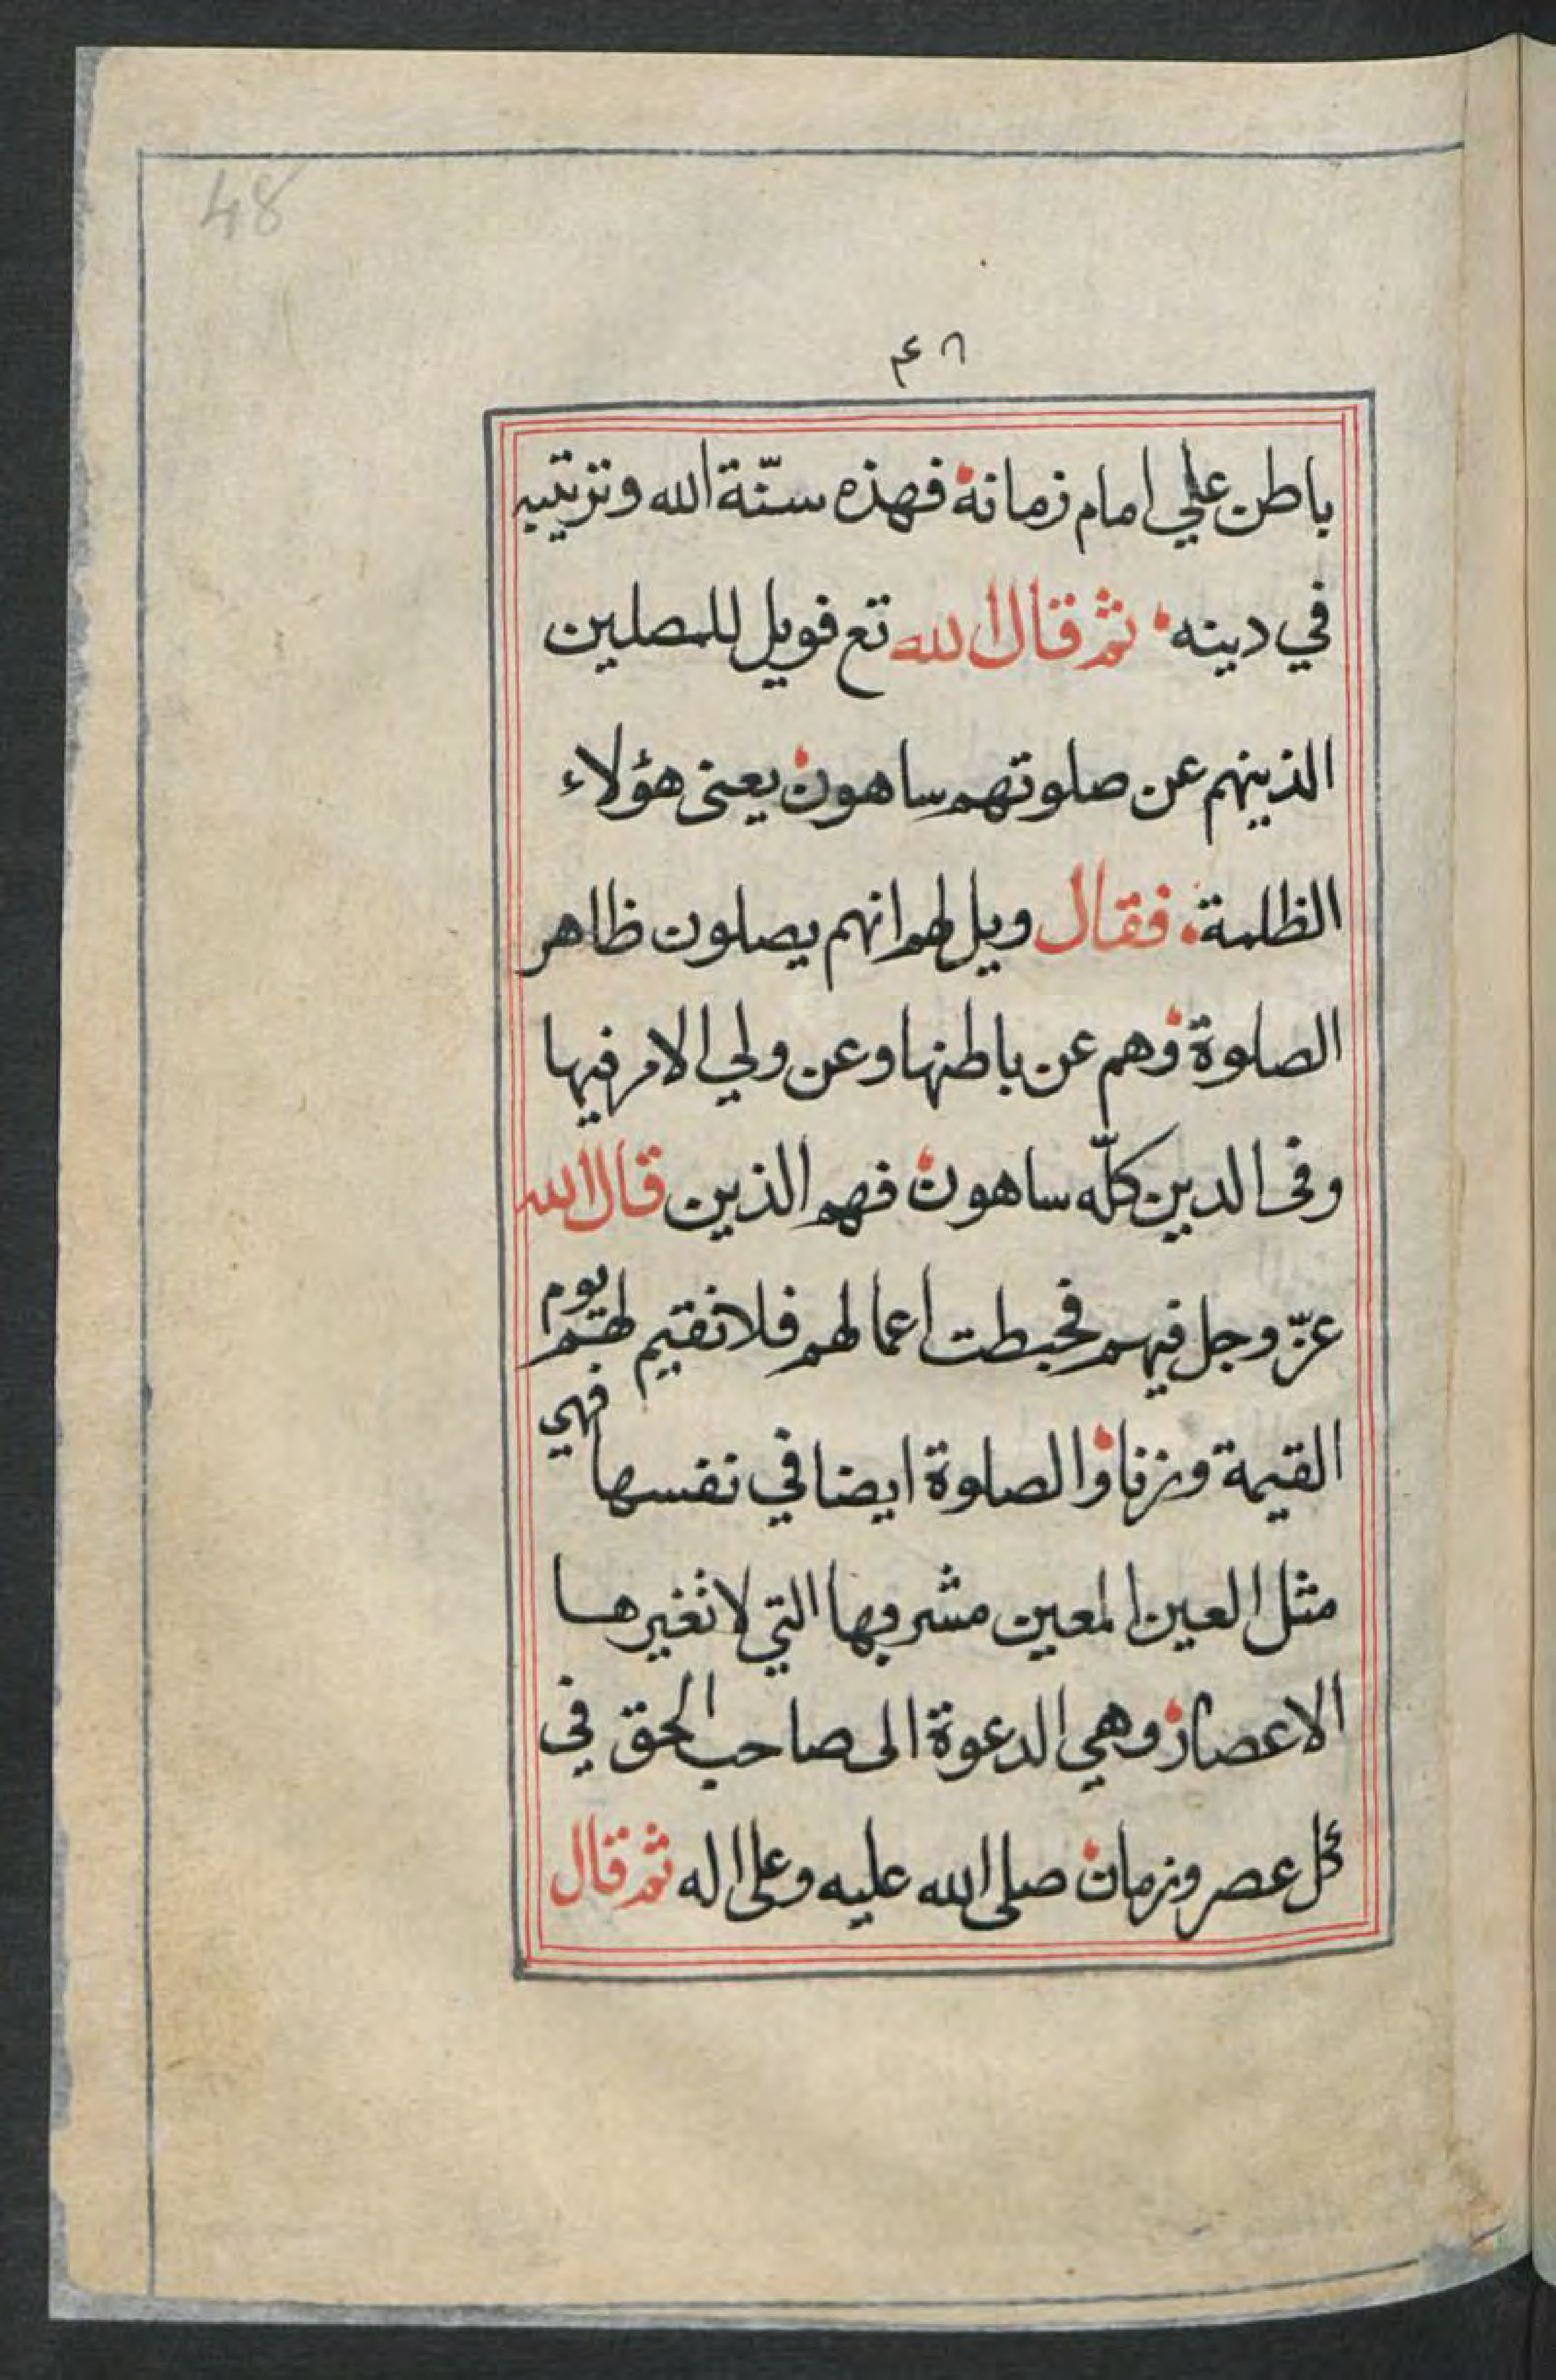 48
٤٨
باطن علي امام زمانه فهذه سنّة الله وترتيبه
في دينه ثم قال الله تع فويل للمصلين
الذينهم عن صلوتهم ساهون يعنى هؤلاء
الظلمة فقال ويل لهم انهم يصلون ظاهر
الصلوة وهم عن باطنها وعن ولي الامر فيها
وفى الدين كلّه ساهون فهم الذين قال الله
عزّ وجل فيهم فحبطت اعمالهم فلا نقيم لهم يوم
القيمة وزنا والصلوة ايضا في نفسها فهي
مثل العين المعين مشربها التي لا تغيرها
الاعصار وهي الدعوة الى صاحب الحق في
كل عصر وزمان صلى الله عليه وعلى اله ثم قال